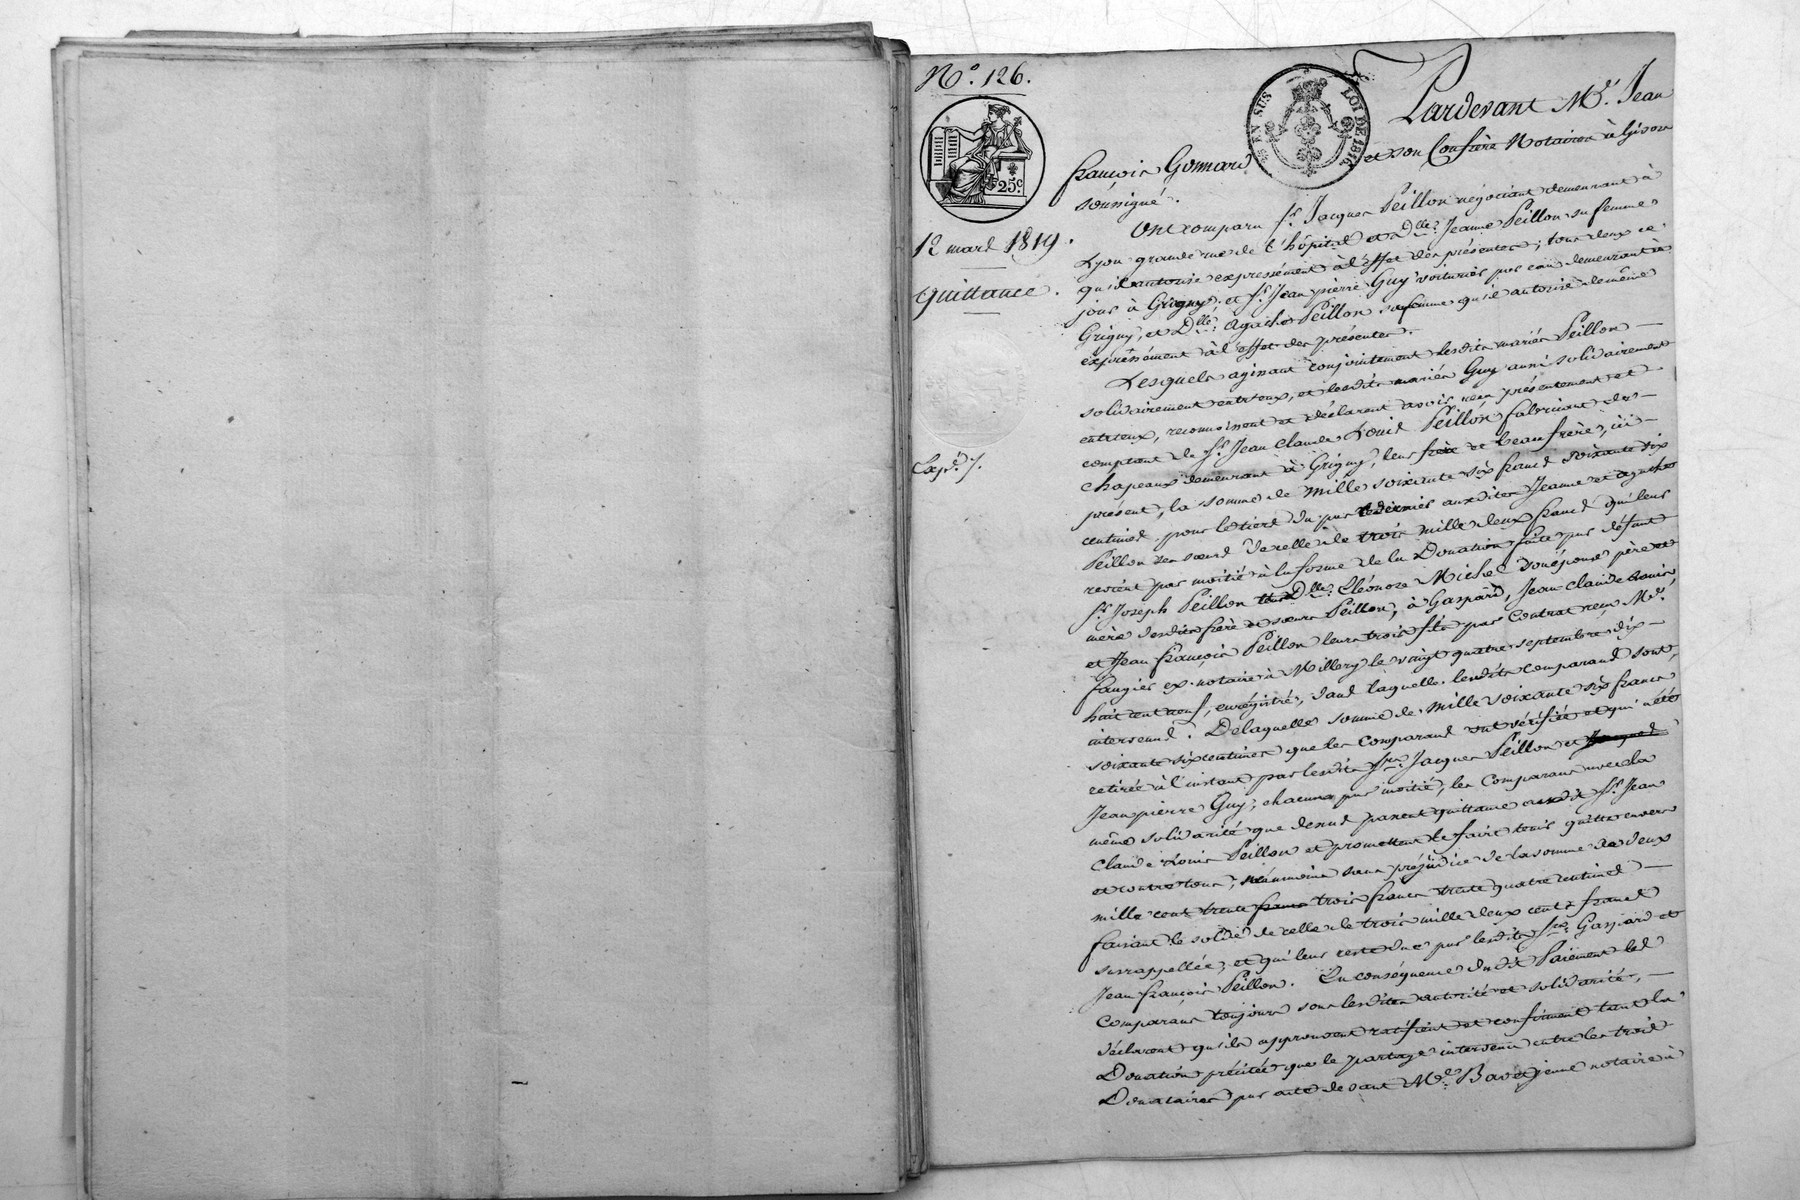 N.° 126.
25 EN SUS LOI DE 1816
25.c
12 mars 1819.
quittance.
Exp.é 7.
Pardevant M.e Jean
françois Gonnard et son Confrère Notaires à Givors
soussigné.
Ont comparu s.r Jacques Peillon négociant demeurant à
Lyon grande rue de l'hôpital et D.lle Jeanne Peillon sa femme
qu'il autorise expressément à l'effet des présentes; tous deux ce
jour à Grigny. et s.r Jean pierre Guy voiturier par eau demeurant à
Grigny, et D.lle Agathe Peillon sa femme qu'il autorise de même
expressément à l'effet des présentes.
Lesquels agissant conjointement lesdits mariés Peillon
solidairement entr'eux, et lesdits mariés Guy aussi solidairement
entr'eux, reconnoissent et déclarent avoir reçu présentement et
comptant de s.r Jean Claude Louis Peillon fabricant de
chapeaux demeurant à Grigny, leur frère et beau frère, ici
présent, la somme de mille soixante six francs soixante six
centimes, pour le tiers du par ce dernier auxdites Jeanne et agathe
Peillon ses sœurs de celle de trois mille deux francs qui leur
revient par moitié à la forme de la Donation faite par défunt
s.r Joseph Peillon D.lle Eléonore Michel son épouse père et
mère desdits frère et sœurs Peillon, à Gaspard, Jean Claude Louis,
et Jean françois Peillon leurs trois fils par Contrat reçu M.e
faugier ex-notaire à Millery le vingt quatre septembre dix
huit cent neuf, enregistré, dans laquelle lesdits comparans sont
intervenus. De laquelle somme de mille soixante six francs
soixante six centimes que les Comparans ont vérifiée et qui a été
retirée à l'instant par lesdits s.rs Jacques Peillon et Jacques
Jean pierre Guy, chacun par moitié, les Comparans avec la
même solidarité que dessus passent quittance audit s.r Jean
Claude Louis Peillon et promettent le faire tenir quitte envers
et contre tous, néanmoins sans préjudice de la somme de deux
mille cent trente francs trois francs trente quatre centimes
faisant le solde de celle de trois mille deux cents francs
surrappellée, et qui leur reste due par lesdits s.rs Gaspard et
Jean françois Peillon. En conséquence dudit Paiement les
comparans toujours sous lesdites autorité et solidarité,
déclarent qu'ils approuvent ratifient et confirment tant la
Donation précitée que le partage intervenu entre les trois
Donataires par acte devant M.e Bavet jeune notaire à